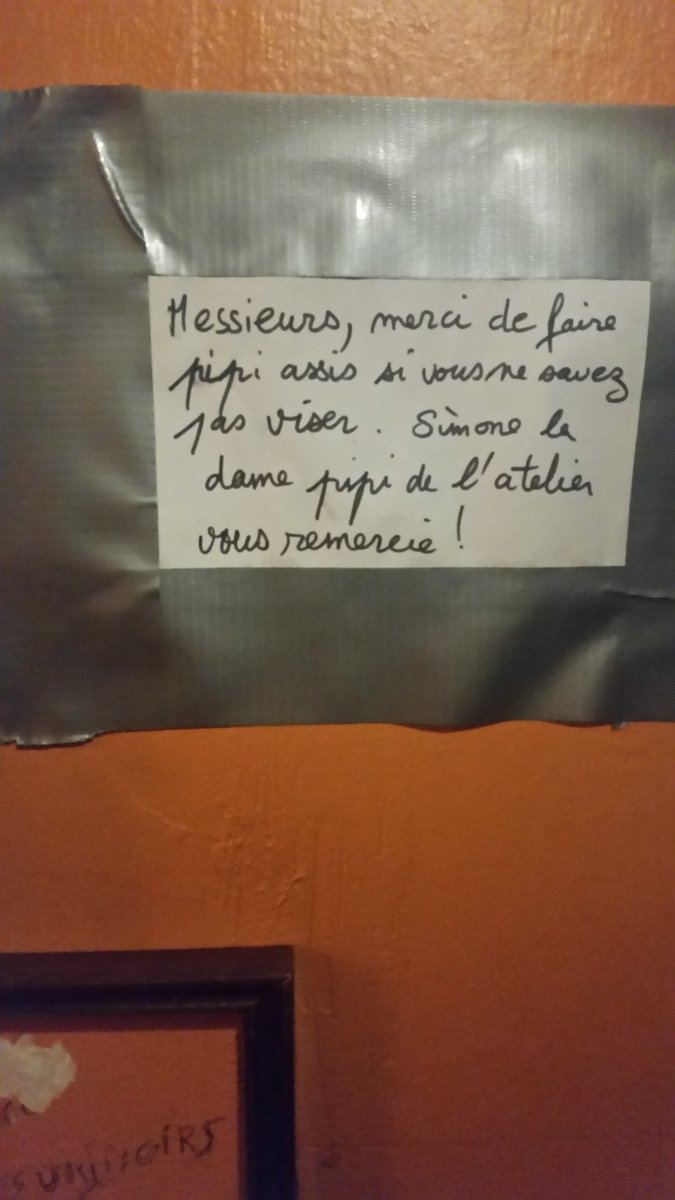 Messieurs, merci de faire
pipi assis si vous ne savez
pas viser. Simone la
dame pipi de l'atelier
vous remercie !